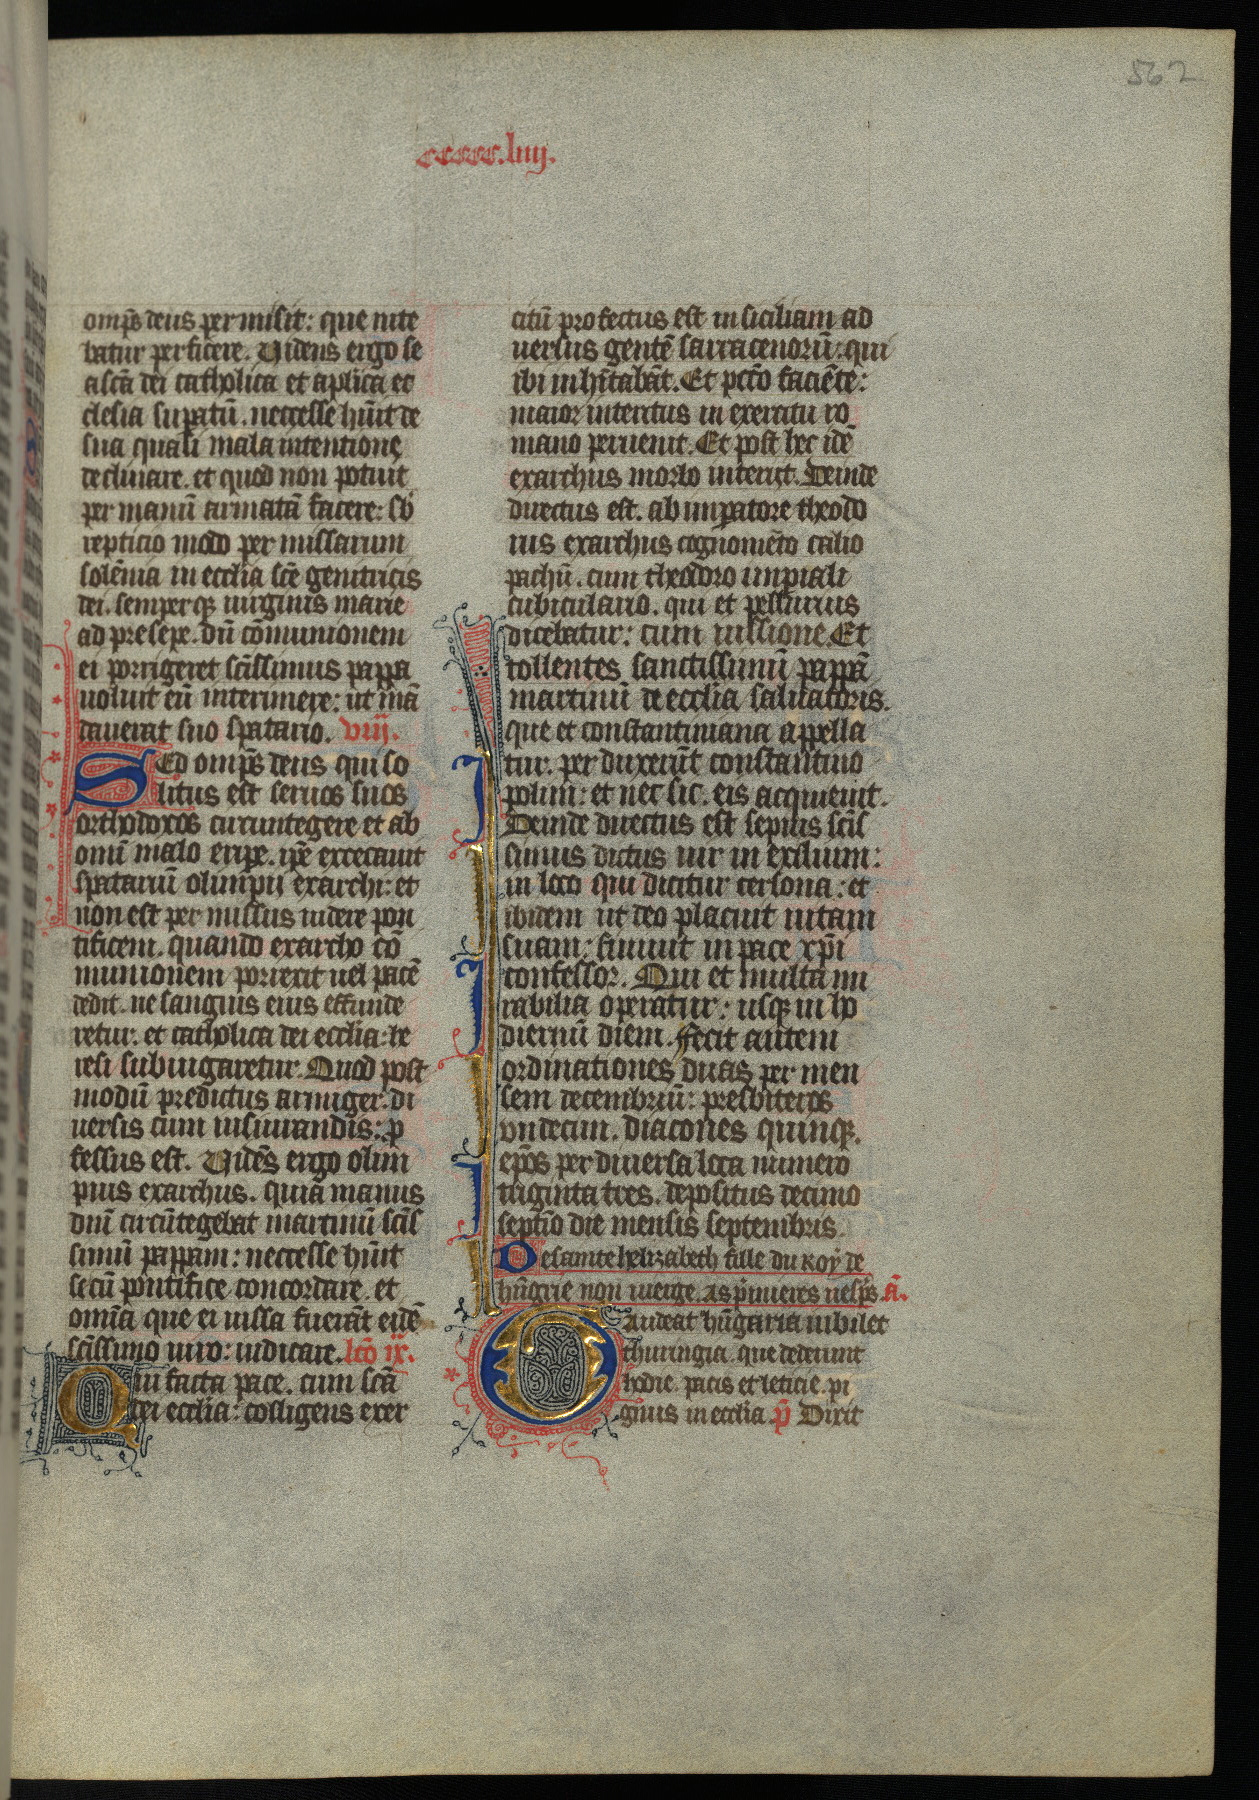 562
ccccc.liiij.
omp̄s deus permisit: que nite
batur perficere. Uidens ergo se
a scā dei catholica et aplica ec
clesia supatū. necesse hūit de
sua quasi mala intentione
declinare. et quod non potuit
per manū armatā facere: sb
repticio modo per missarum
solēnia in ecclia scē genitricis
dei. semperqꝫ uirginis marie
ad presepe. dū cōmunionem
ei porrigeret scissimus pappa
uoluit eū interimere: ut mā
dauerat suo spatario. viij.
Sed omp̄s deus qui so
litus est seruos suos
orthodoxos circuntegere et ab
omī malo eripe. ipē excecauit
spatariū olimpii exarchi: et
non est permissus uidere pon
tificem. quando exarcho cō
munionem porrexit uel pacē
dedit. ne sanguis eius effunde
retur. et catholica dei ecclia: he
resi subiugaretur. Quod post
modū predictus armiger. di
uersis cum iusiurandis: ꝓ
fessus est. Uidēs ergo olim
pius exarchus. quia manus
dnī circūtegebat martinū scis
simū pappam: neccesse hūit
secū pontifice concordare. et
omīa que ei iussa fuerāt eidē
scissimo uiro: iudicare. lcō ix.
Qui facta pace. cum scā
dei ecclia: colligens exer
citū profectus est in siciliam ad
uersus gentē sarracenorū: qui
ibi inhītabāt. Et pctō faciēte:
maior interitus in exercitu ro
mano peruenit. Et post hec idē
exarchus morbo interiit. Deinde
directus est. ab impatore theodo
rus exarchus cognomēto calio
pachū. cum theodoro impiali
cubiculario. qui et pellurius
dicebatur: cum iussione. Et
tollentes sanctissimū pappā
martinū de ecclia saluatoris.
que et constantiniana appella
tur. perduxerūt constantino
polim: et nec sic. eis acquieuit.
Deinde directus est sepius scis
simus dictus uir in exilium:
in loco qui dicitur cersona: et
ibidem ut deo placuit uitam
suam: finiuit in pace xp̄i
confessor. Qui et multa mi
rabilia operatur: usqꝫ in ho
diernū diem. Fecit autem
ordinationes duas per men
sem decembriū: presbiteros
vndecim. diacones quinqꝫ.
ep̄os per diuersa loca numero
triginta tres. depositus decimo
septīo die mensis septembris.
De sainte helizabeth fille du roy de
hūgrie non uierge. as p̄mieres uesp̄s. ā.
Gaudeat hūgaria iubilet
thuringia. que dederunt
hodie. pacis et leticie. pi
gnus in ecclia. p̄ Dixit